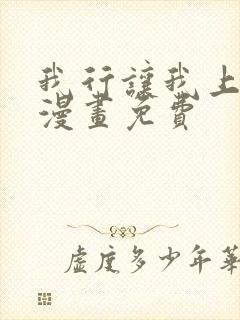 我行讓我上
漫畫免費
虛度多少年華